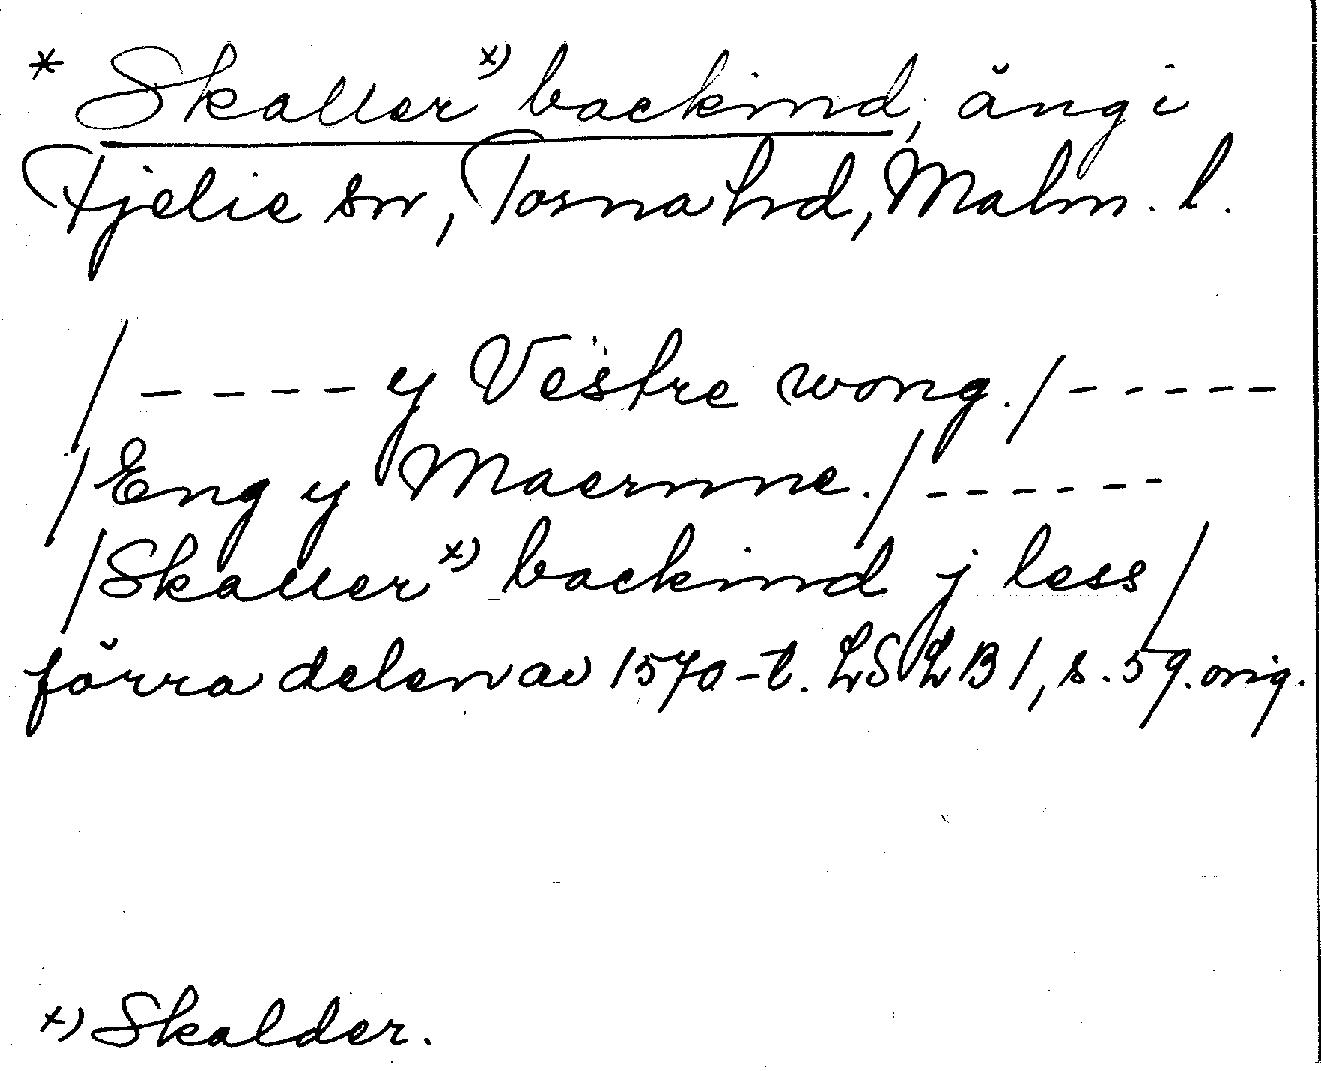 * Skaller x) backind, äng i
Fjelie sn, Torna hd, Malm. l.
/ - - - - y Vestre wong. / - - - - -
/ Eng y Maermne. / - - - - - -
/ Skaller x) backind j less /
förra delen av 1570-t. LSLB 1, s. 59. orig.
x) Skalder.